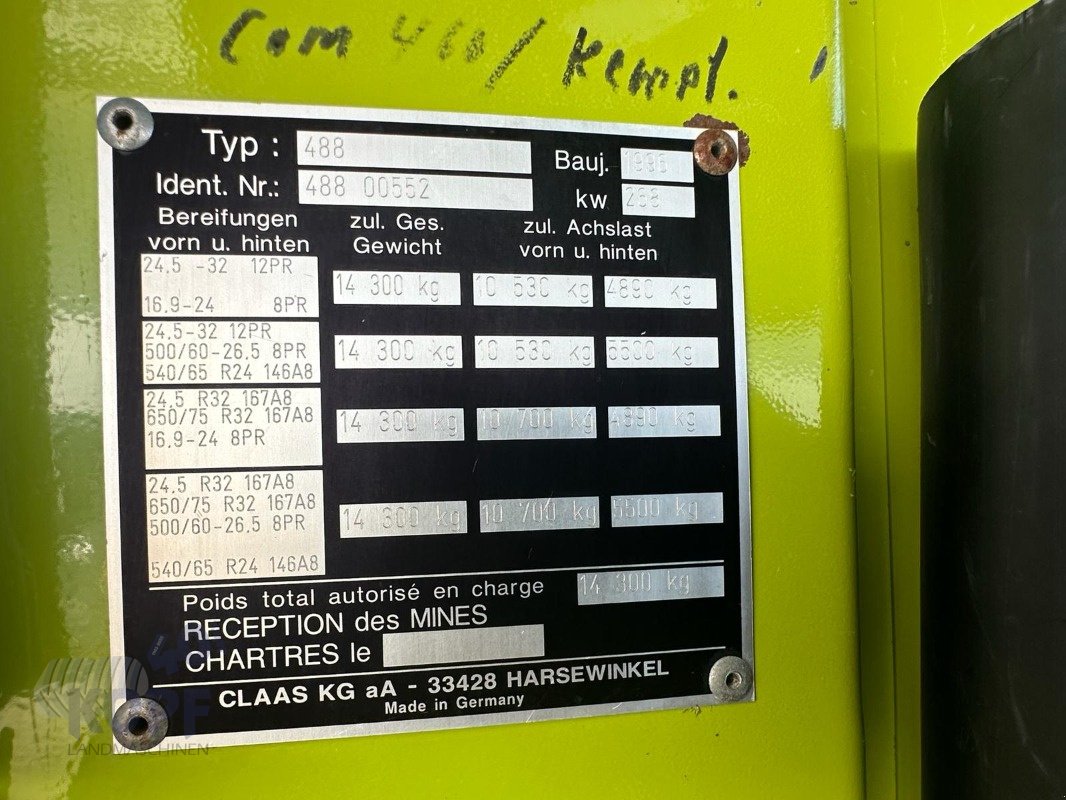 Com 410/Kempl.
Typ : 488 Bauj. 1996
Ident. Nr.: 488 00552 kw
Bereifungen vorn u. hinten zul. Ges. Gewicht zul. Achslast vorn u. hinten
24.5 -32 12PR
16.9-24 8PR 14 300 kg 10 530 kg 4890 kg
24.5-32 12PR
500/60-26.5 8PR 14 300 kg 10 530 kg 5500 kg
540/65 R24 146A8
24.5 R32 167A8
650/75 R32 167A8 14 300 kg 10 700 kg 4890 kg
16.9-24 8PR
24.5 R32 167A8
650/75 R32 167A8
500/60-26.5 8PR 14 300 kg 10 700 kg 5500 kg
540/65 R24 146A8
Poids total autorisé en charge 14 300 kg
RECEPTION des MINES
CHARTRES le
CLAAS KG aA - 33428 HARSEWINKEL
Made in Germany
KOPF
LANDMASCHINEN